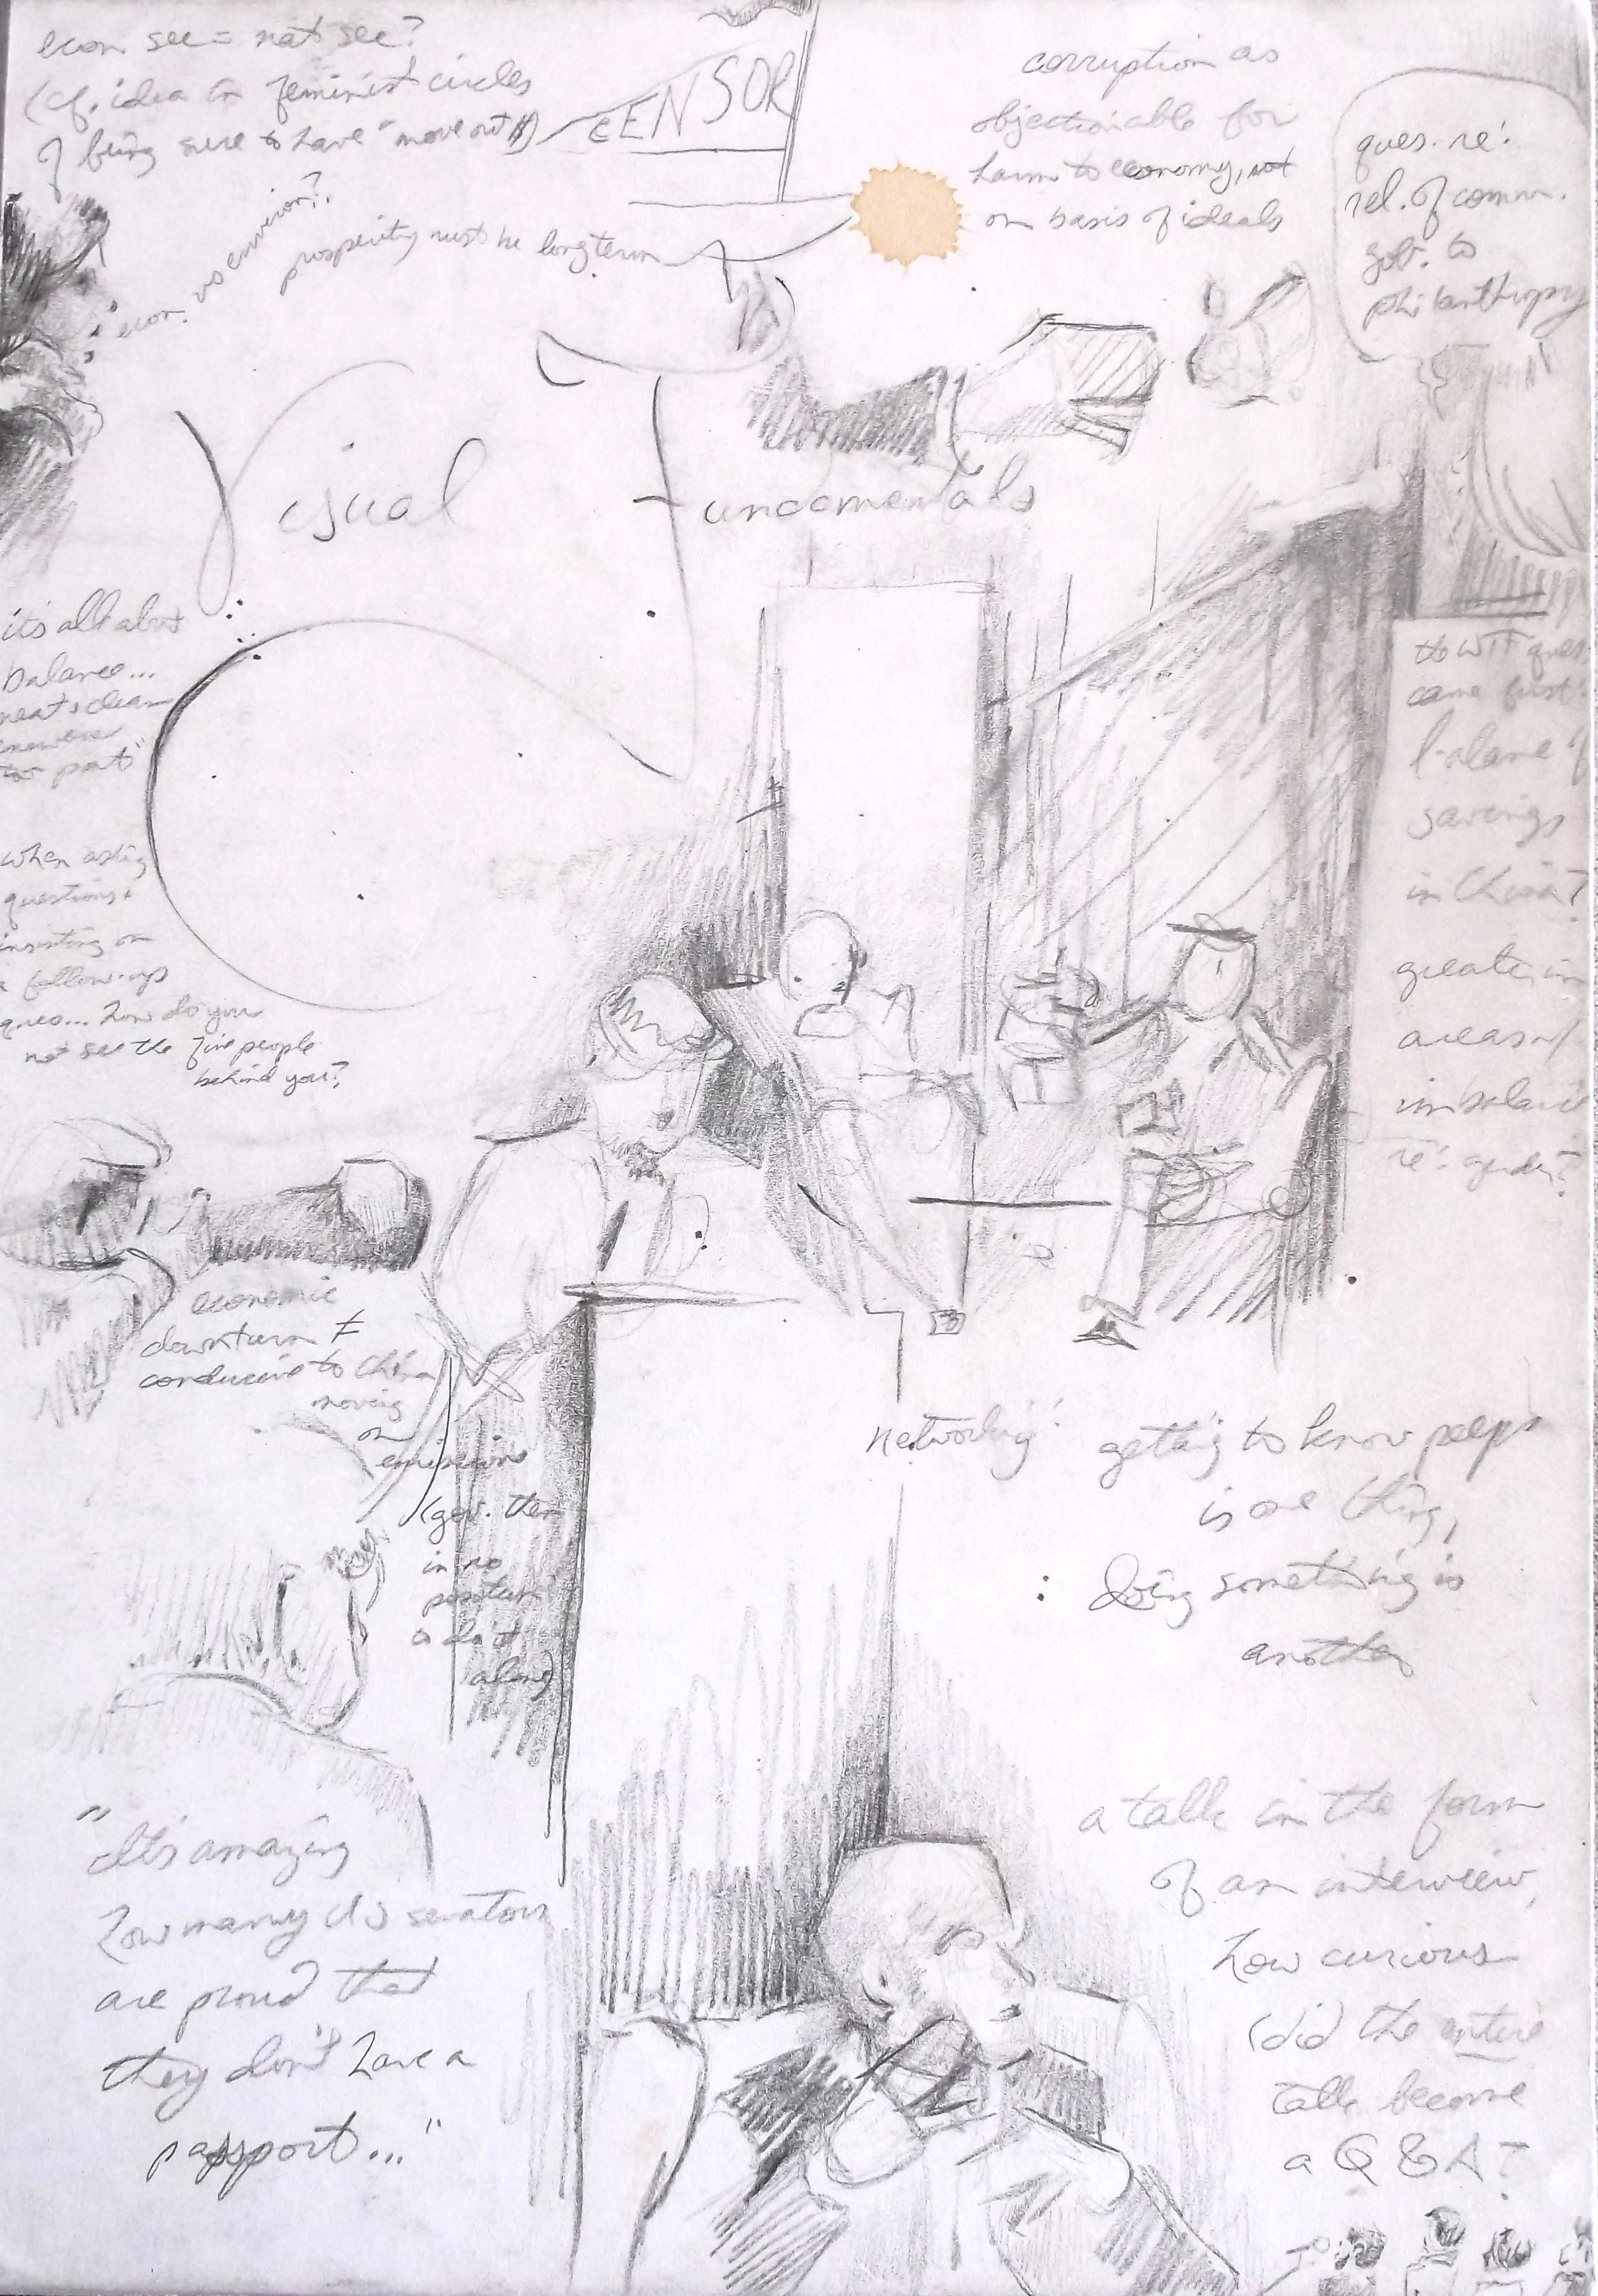 econ. see = not see?
(cf. idea in feminist circles
of being sure to have "move out $")
CENSOR
econ. vs environ??
prosperity must be long term
corruption as
objectionable for
harm to economy, not
on basis of ideals
ques. re:
rel. of comm.
gov't. to
philanthropy
Visual Fundamentals
it's all about
balance...
neat & clean
part"
when asking
questions &
insisting on
a follow-up
ques... how do you
not see the five people
behind you?
to WTF ques
came first:
balance of
savings
in China?
greater in
areas w/
imbalance
re: gender?
economic
downturn ≠
conducive to China
moving
on
emissions
(gov. then
in no
position
to do it
alone)
networking: getting to know peeps
is one thing,
: doing something is
another
"It's amazing
how many US senators
are proud that
they don't have a
passport..."
a talk in the form
of an interview,
how curious
(did the entire
talk become
a Q & A?